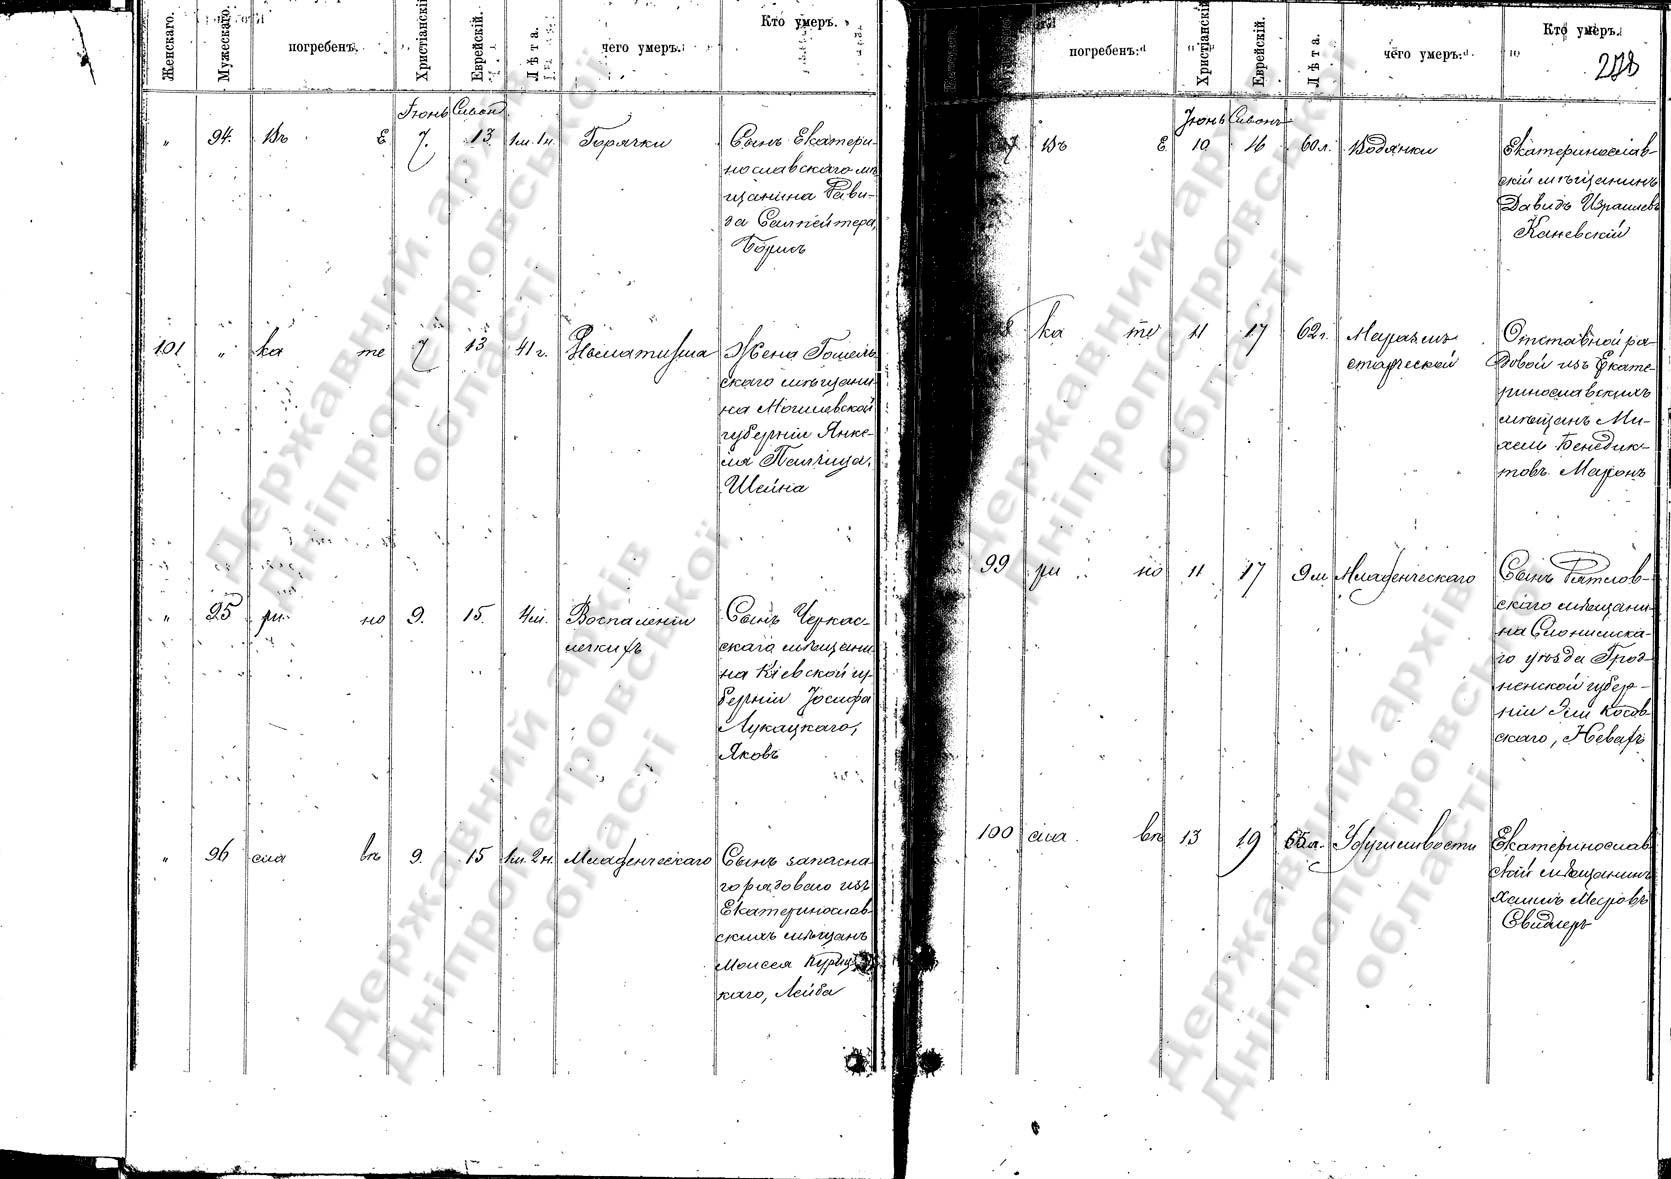 Женскаго.
Мужескаго.
погребенъ.
Христіанскій
Еврейскій.
Лѣта.
чего умеръ.
Кто умеръ.
Іюнь Сивон
„ 94. Въ Е 7. 13. 1м. 1н. Горячки
Сынъ Екатери-
нославскаго мѣ
щанина Дави-
да
Борисъ
101 „ ка те 7 13 41 г. Ревматизма
Жена Гомель
скаго мѣщани-
на Могилевской
губерніи Янке-
ля
Шейна
„ 95 ри но 9. 15. 4м. Воспаленіи
легкихъ
Сынъ Черкас-
скаго мѣщани
на Кіевской гу-
берніи Іосифа
Лукацкаго,
Яковъ
„ 96 сла въ 9. 15 1м. 2н. Младенческаго
Сынъ запасна
го рядоваго изъ
Екатеринослав
скихъ мѣщанъ
Моисея
каго, Лейба
погребенъ:
Христіанскій
Еврейскій.
Лѣта.
чего умеръ:
Кто умеръ.
278
Іюнь Сивонъ
97 Въ Е 10 16 60 л. Водянки
Екатеринослав-
скій мѣщанинъ
Давидъ Израилевъ
Каневскій
98 ка те 11 17 62 г. Маразмъ
старческой
Отставной ря-
довой изъ Екате-
ринославскихъ
мѣщанъ Ми-
хель Бенедик-
товъ Маронъ
99 ри но 11 17 9м Младенческаго
Сынъ
скаго мѣщани-
на Слонимска-
го уѣзда Грод-
ненской губер-
ніи Эли Косов-
скаго,
100 сла въ 13 19 65 л. Удушливости
Екатеринослав
скій мѣщанинъ
Хаимъ Меировъ
Свидлеръ
Державний архів
Дніпропетровської
області
Державний архів
Дніпропетровської
області
Державний архів
Дніпропетровської
області
Державний архів
Дніпропетровської
області